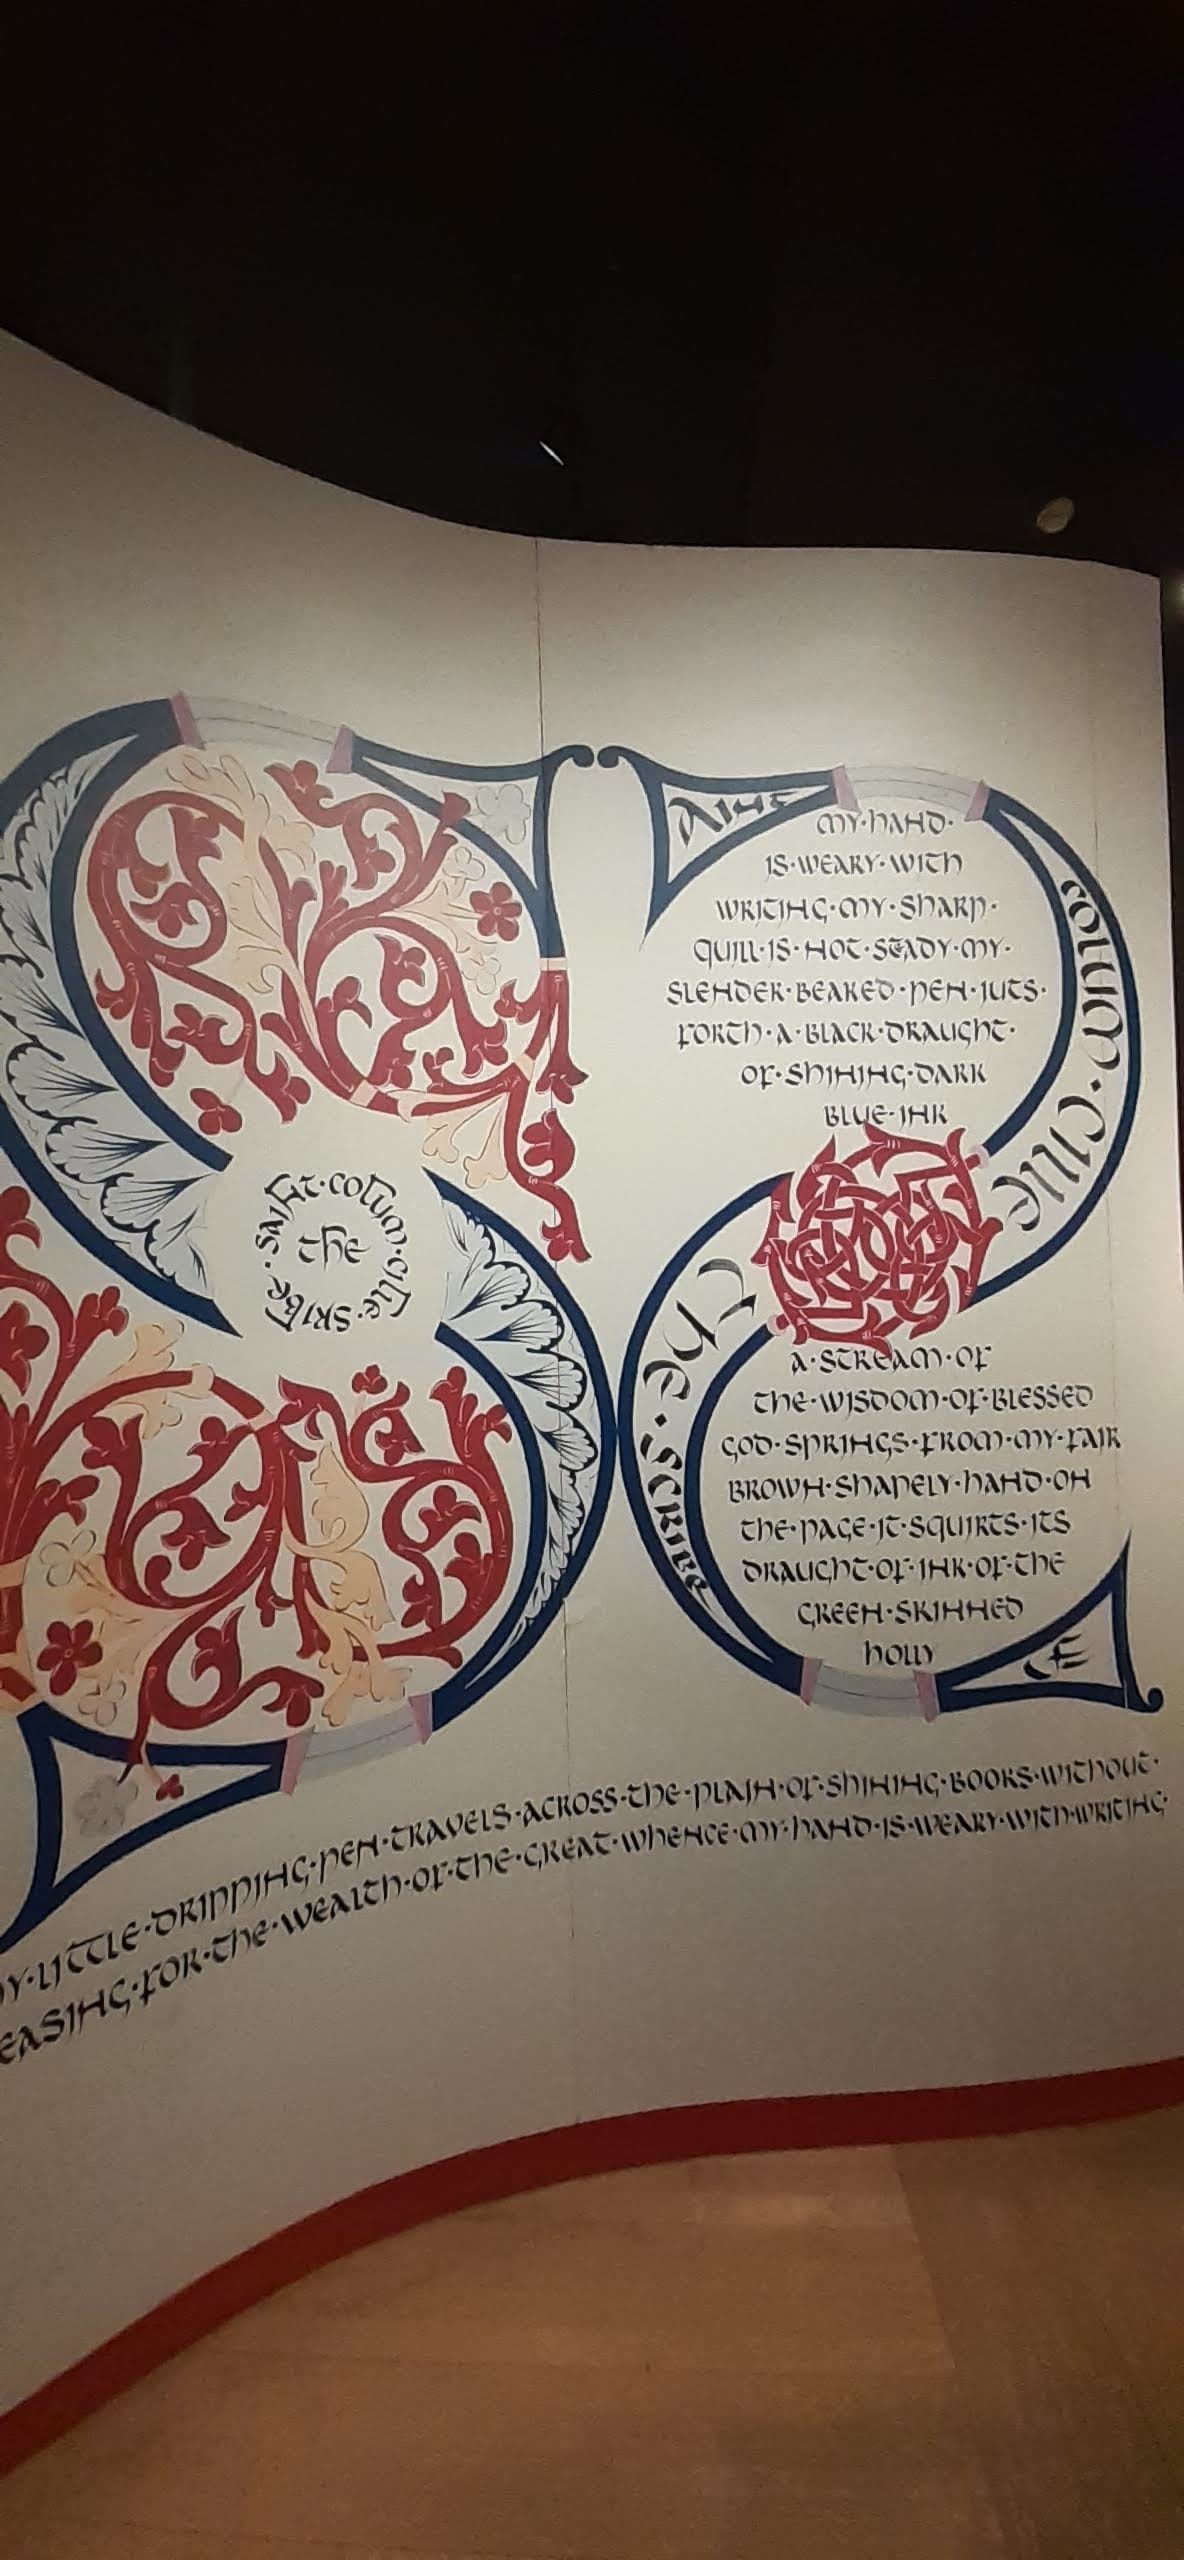 SAINT·COLUM·CILLE·SKIBE·
the
COLUM·CILLE
MY·HAND·
IS·WEARY·WITH
WRITING·MY·SHARP·
QUILL·IS·NOT·STEADY·MY·
SLENDER·BEAKED·PEN·JUTS·
FORTH·A·BLACK·DRAUGHT·
OF·SHINING·DARK
BLUE·INK
THE·SCRIBE
A·STREAM·OF
THE·WISDOM·OF·BLESSED
GOD·SPRINGS·FROM·MY·FAIR
BROWN·SHAPELY·HAND·ON
THE·PAGE·IT·SQUIRTS·ITS
DRAUGHT·OF·INK·OF·THE
GREEN·SKINNED
HOLLY
LITTLE·DRIPPING·PEN·TRAVELS·ACROSS·THE·PLAIN·OF·SHINING·BOOKS·WITHOUT·
FOR·THE·WEALTH·OF·THE·GREAT·WHENCE·MY·HAND·IS·WEARY·WITH·WRITING